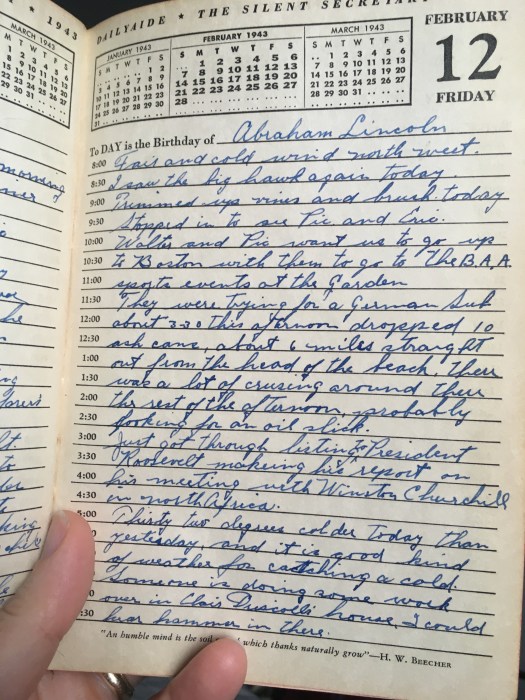 1943
DAILYAIDE ★ THE SILENT SECRETARY
MARCH 1943
M T W T F S
1 2 3 4 5 6
8 9 10 11 12 13
15 16 17 18 19 20
22 23 24 25 26 27
29 30 31
JANUARY 1943
S M T W T F S
1 2
3 4 5 6 7 8 9
10 11 12 13 14 15 16
17 18 19 20 21 22 23
24 25 26 27 28 29 30
31
FEBRUARY 1943
S M T W T F S
1 2 3 4 5 6
7 8 9 10 11 12 13
14 15 16 17 18 19 20
21 22 23 24 25 26 27
28
MARCH 1943
S M T W T F S
1 2 3 4 5 6
7 8 9 10 11 12 13
14 15 16 17 18 19 20
21 22 23 24 25 26 27
28 29 30 31
FEBRUARY
12
FRIDAY
To DAY is the Birthday of Abraham Lincoln
8:00 Fair and cold wind north west.
8:30 I saw the big hawk again today.
9:00 Trimmed up vines and brush today
9:30 Stopped in to see Pic and Eric.
10:00 Walter and Pic want us to go up
10:30 to Boston with them to go to the B.A.A.
11:00 sports events at the Garden
11:30 They were trying for a German Sub
12:00 about 3:30 this afternoon dropped 10
12:30 ash cans, about 6 miles straight
1:00 out from the head of the beach. Ther
1:30 was a lot of crusing around ther
2:00 the rest of the afternoon, probably
2:30 looking for an oil slick.
3:00 Just got through listing to President
3:30 Roosevelt makeing his report on
4:00 his meeting with Winston Churchill
4:30 in north Africa.
5:00 Thirty two degrees colder today than
yesterday and it is good kind
of weather for catching a cold.
Someone is doing some work
over in Clair Driscolls house, I could
:30 hear hammer in there.
"An humble mind is the soil which thanks naturally grow"—H. W. BEECHER